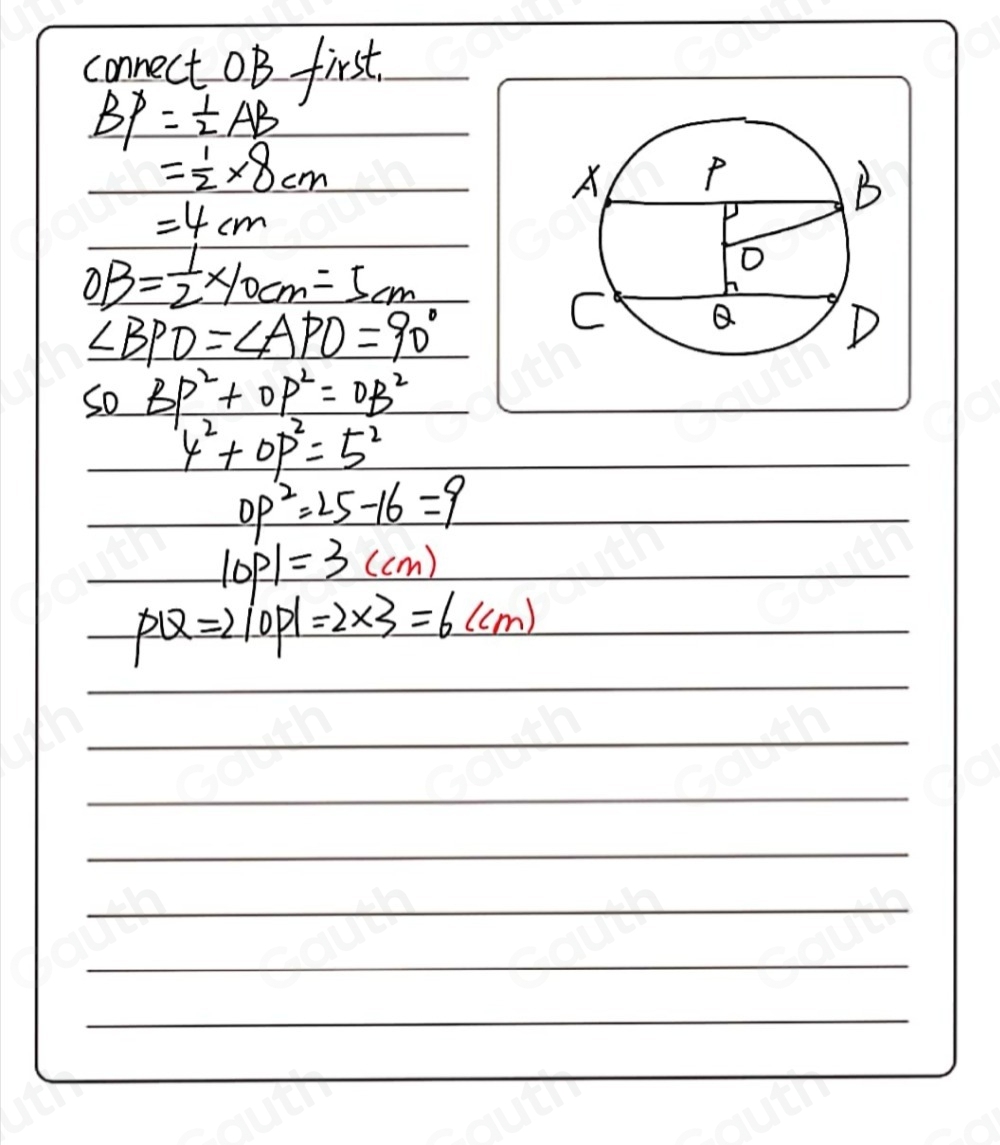 connect OB first.
BP = 1/2 AB
= 1/2 × 8 cm
= 4 cm
OB = 1/2 × 10cm = 5cm
∠BPO = ∠APO = 90°
so BP² + OP² = OB²
4² + OP² = 5²
OP² = 25 - 16 = 9
|OP| = 3 (cm)
PQ = 2|OP| = 2×3 = 6 (cm)
A
P
B
O
C
Q
D
Gauth